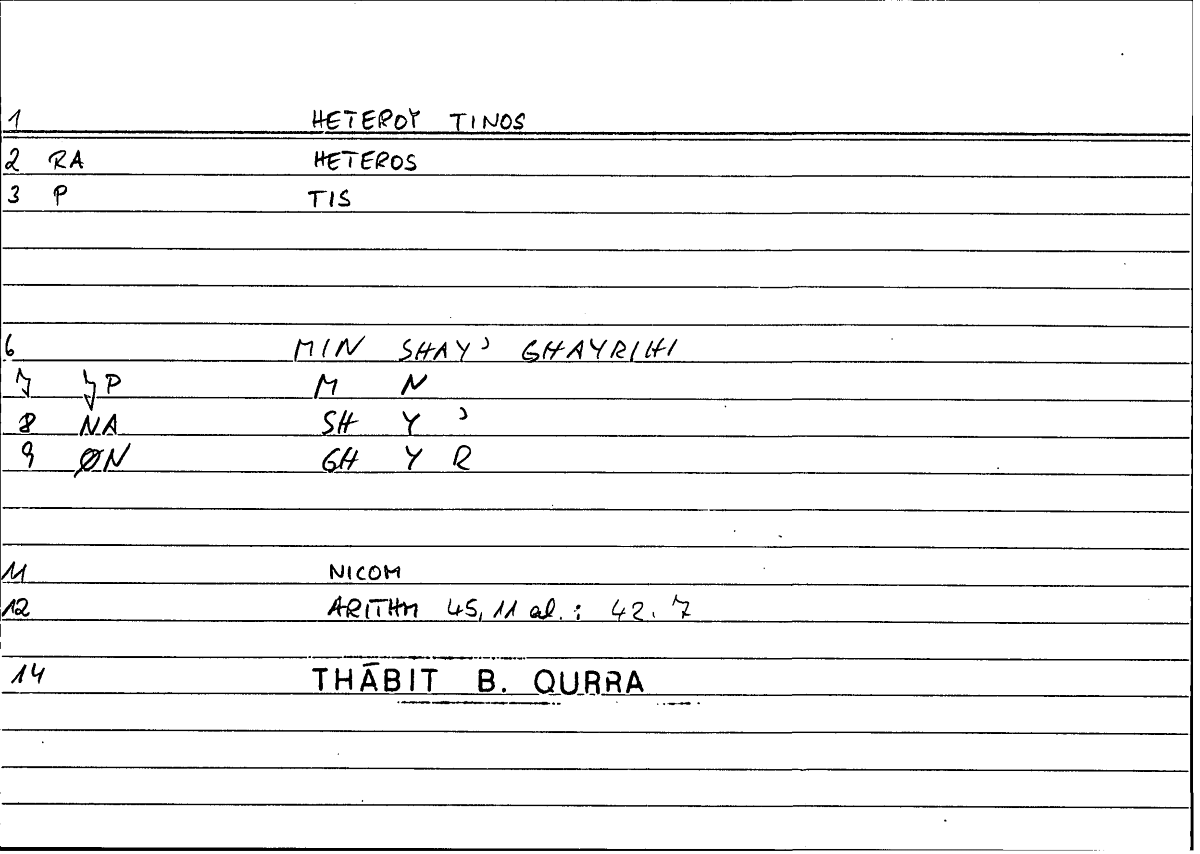 1 HETEROY TINOS
2 RA HETEROS
3 P TIS
6 MIN SHAY' GHAYRIHI
7 P M N
8 NA SH Y '
9 ØN GH Y R
11 NICOM
12 ARITHM 45, 11 al.: 42.7
14 THĀBIT B. QURRA